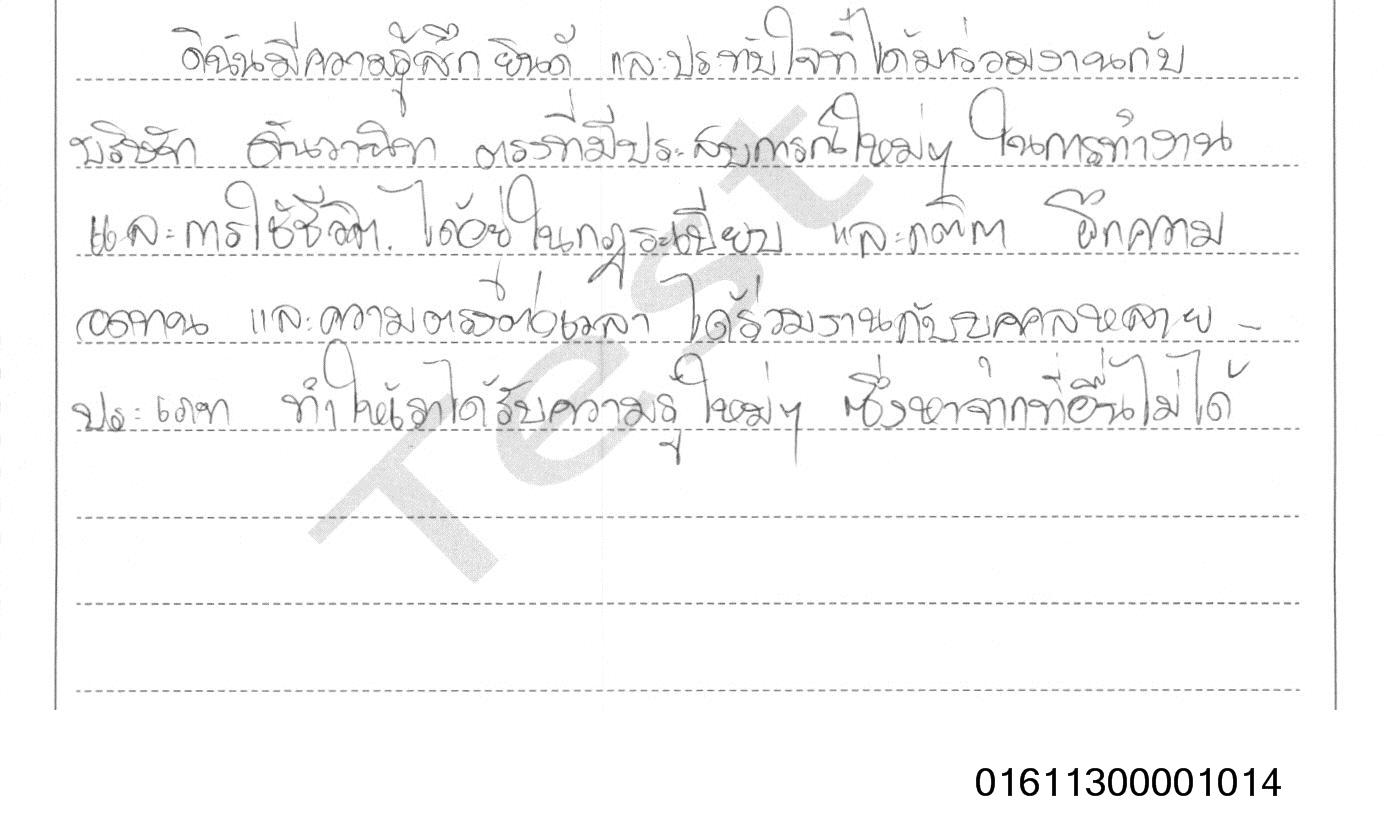 ดิฉันมีความรู้สึก ยินดี และประทับใจที่ได้มาร่วมงานกับ
บริษัท จันวาณิช ตรงที่มีประสบการณ์ใหม่ๆ ในการทำงาน
และการใช้ชีวิต ได้อยู่ในกฎระเบียบ และกติกา ฝึกความ
อดทน และความตรงต่อเวลา ได้ร่วมงานกับบุคคลหลาย -
ประเภท ทำให้เราได้รับความรู้ใหม่ๆ ซึ่งหาจากที่อื่นไม่ได้
Test
01611300001014